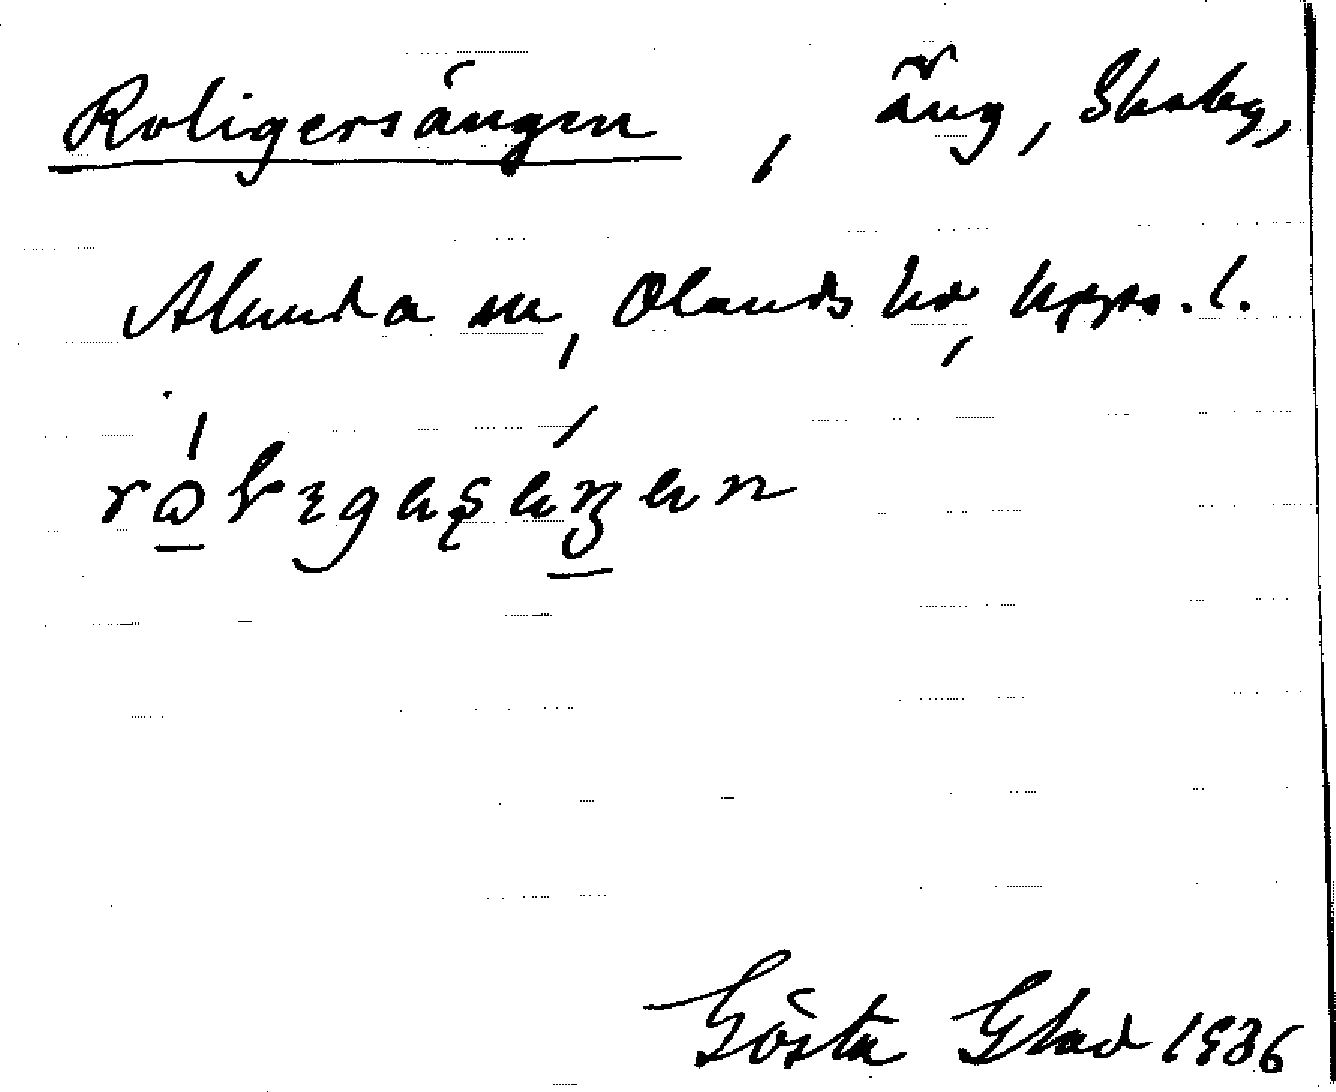 Roligersängen, äng, Skoby,
Alunda sn, Olands hd, Upps. l.
Gösta Glad 1936